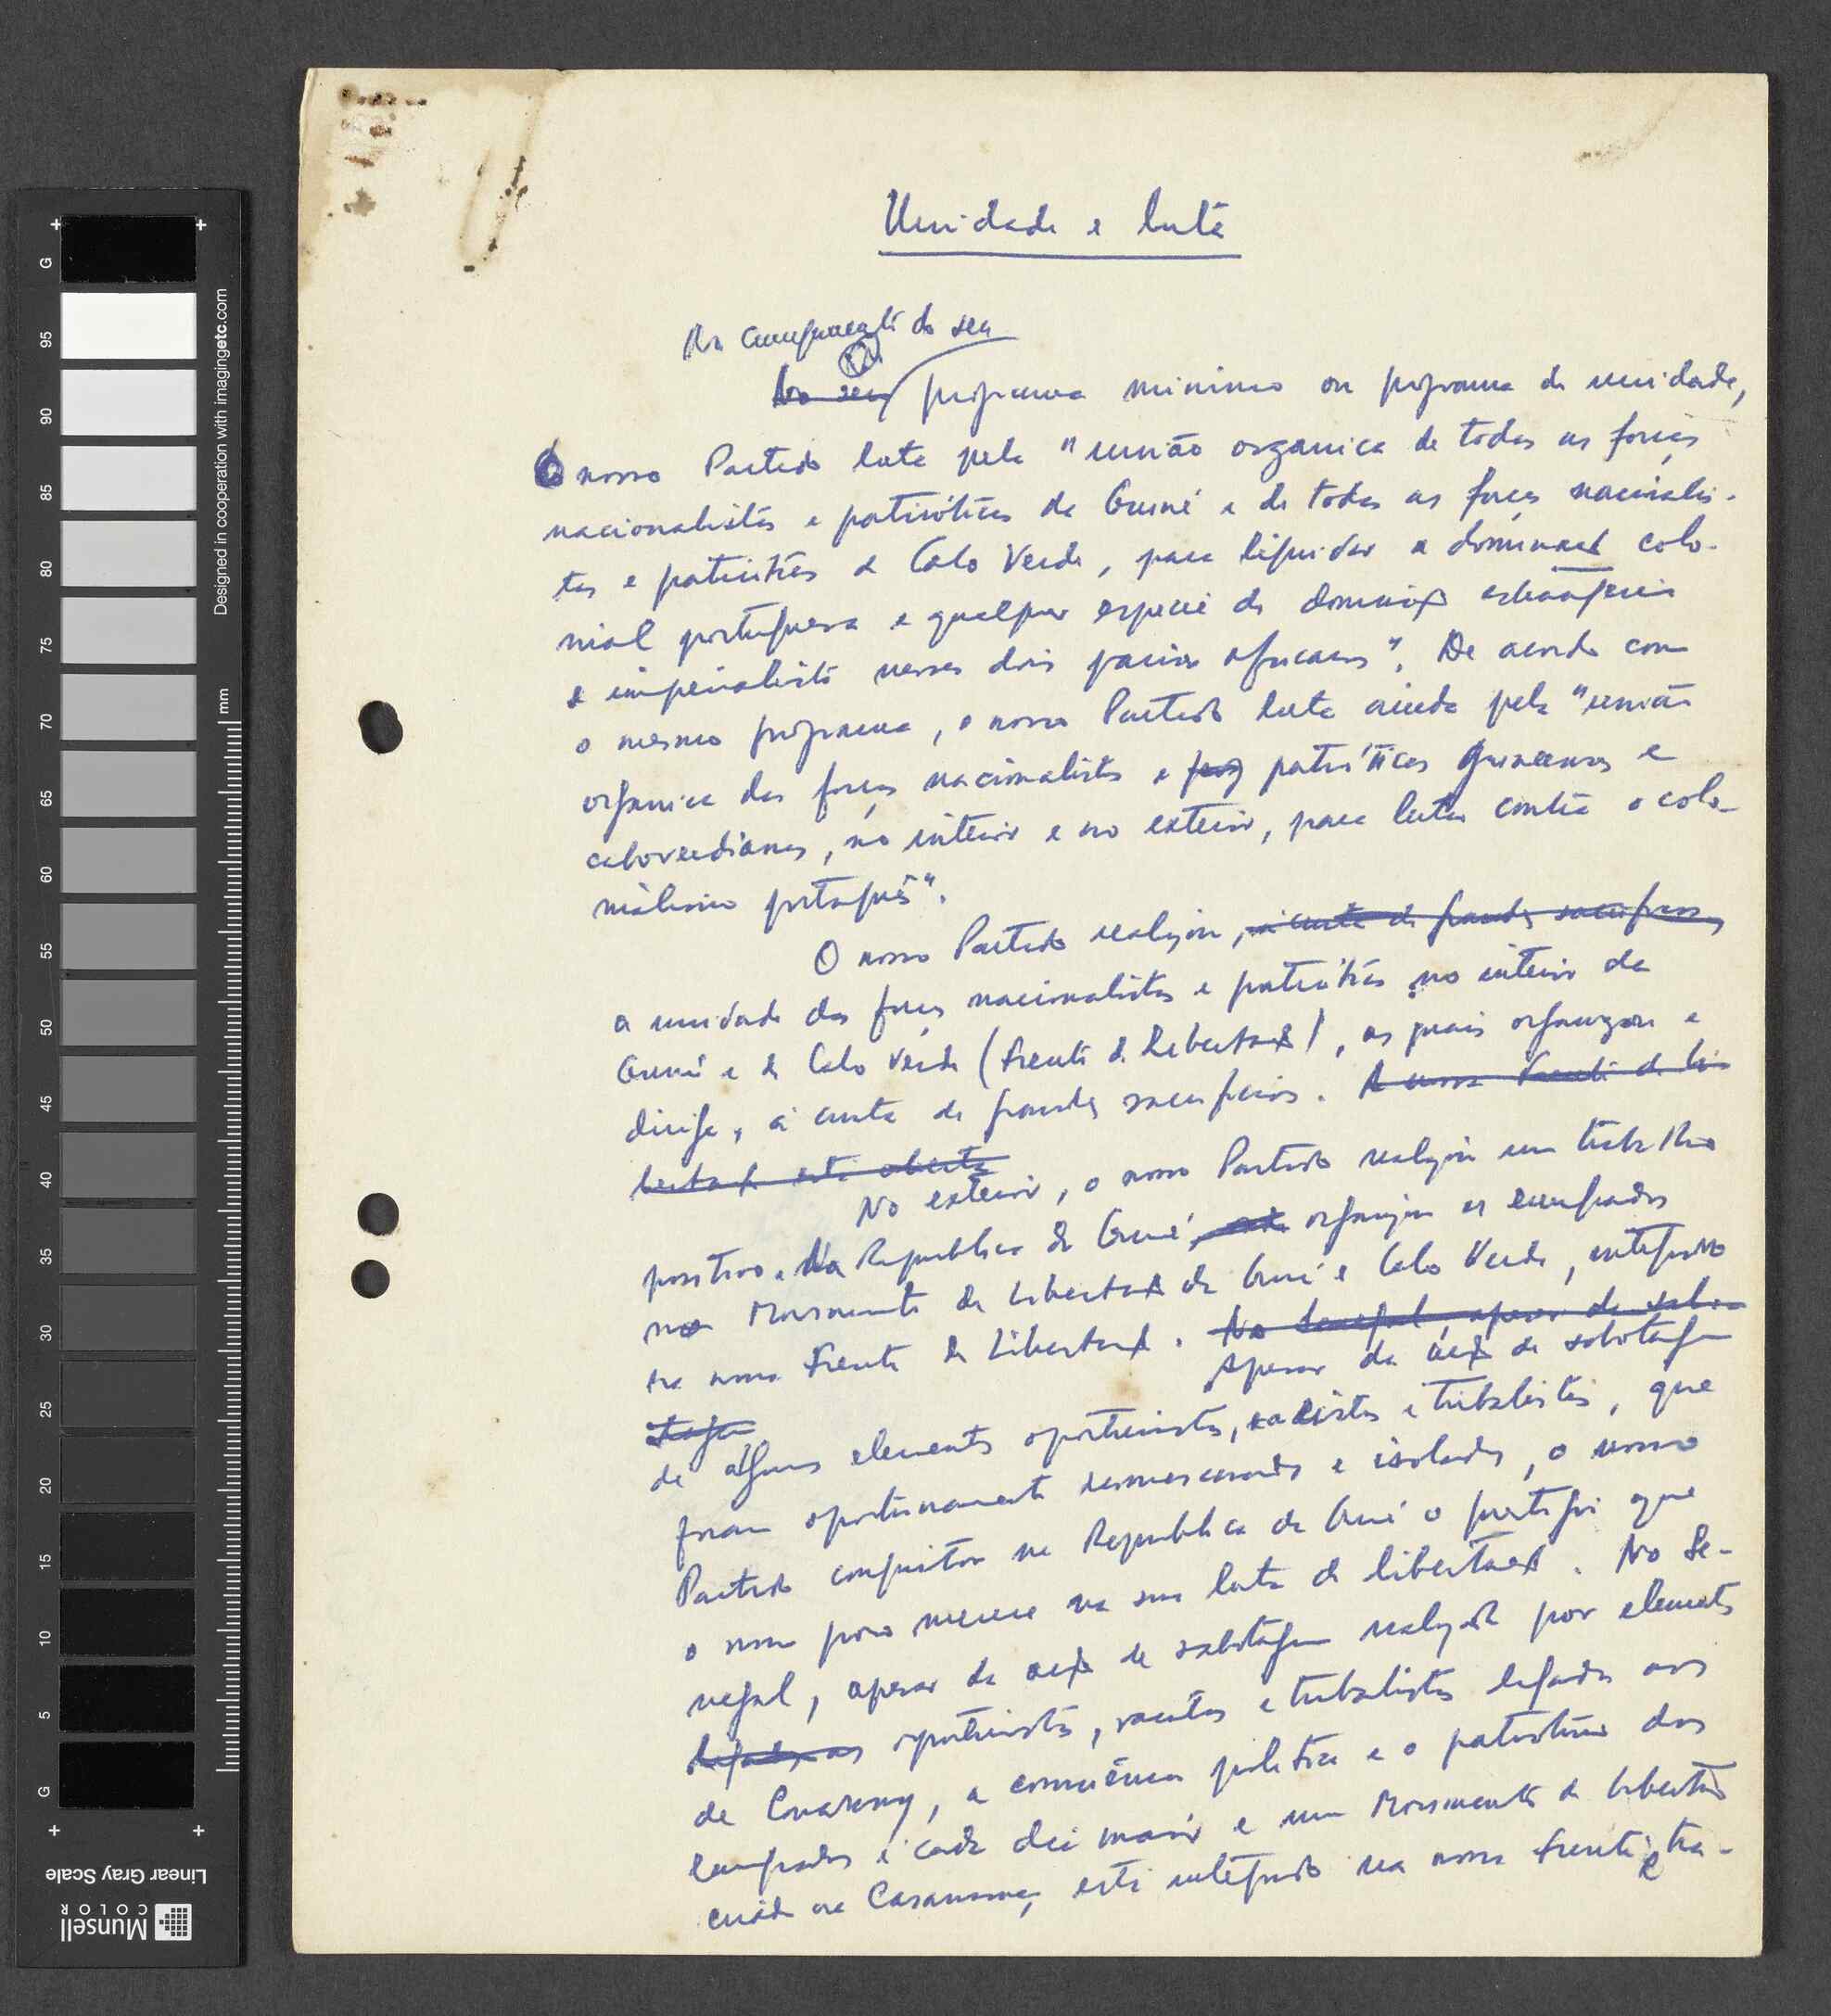 Unidade e luta
Na do seu
No seu programa minimo ou programa de unidade,
O nosso Partido luta pela "união organica de todas as forças
nacionalistas e patrióticas da Guiné e de todas as forças nacionalis-
tas e patrióticas de Cabo Verde, para liquidar a dominação colo-
nial portuguesa e qualquer especie de dominação estrangeira
e imperialista nesses dois paises africanos". De acordo com
o mesmo programa, o nosso Partido luta ainda pela "união
organica das forças nacionalistas e patrióticas guineenses e
caboverdianas, no interior e no exterior, para lutar contra o colo-
nialismo português".
O nosso Partido realizou, à custa de grandes sacrificios,
a unidade das forças nacionalistas e patrióticas no interior da
Guiné e de Cabo Verde (Frente de Libertação), as quais organizou e
dirige, à custa de grandes sacrificios. A nossa Frente de Li-
bertação está aberta
No exterior, o nosso Partido realizou um trabalho
positivo. Na Republica da Guiné, organizou os emigrados
no Movimento de Libertação da Guiné e Cabo Verde, integrado
na nossa Frente de Libertação. No Senegal, apesar da sabo-
tagem
Apesar da acção de sabotagem
de alguns elementos oportunistas, racistas e tribalistas, que
foram oportunamente desmascarados e isolados, o nosso
Partido conquistou na Republica da Guiné o prestigio que
o nosso povo merece na sua luta de libertação. No Se-
negal, apesar da acção de sabotagem realizada por elementos
ligados aos oportunistas, racistas e tribalistas ligados aos
de Conakry, a consciência politica e o patriotismo dos
emigrados é cada dia maior e um Movimento de Libertação
criado na Casamansa, está integrado na nossa Frente e tra-
G 95 90 85 80 75 70 65 60 55 50 45 40 35 30 25 20 15 10 5 G
Designed in cooperation with imagingetc.com
mm
Linear Gray Scale
Munsell
COLOR